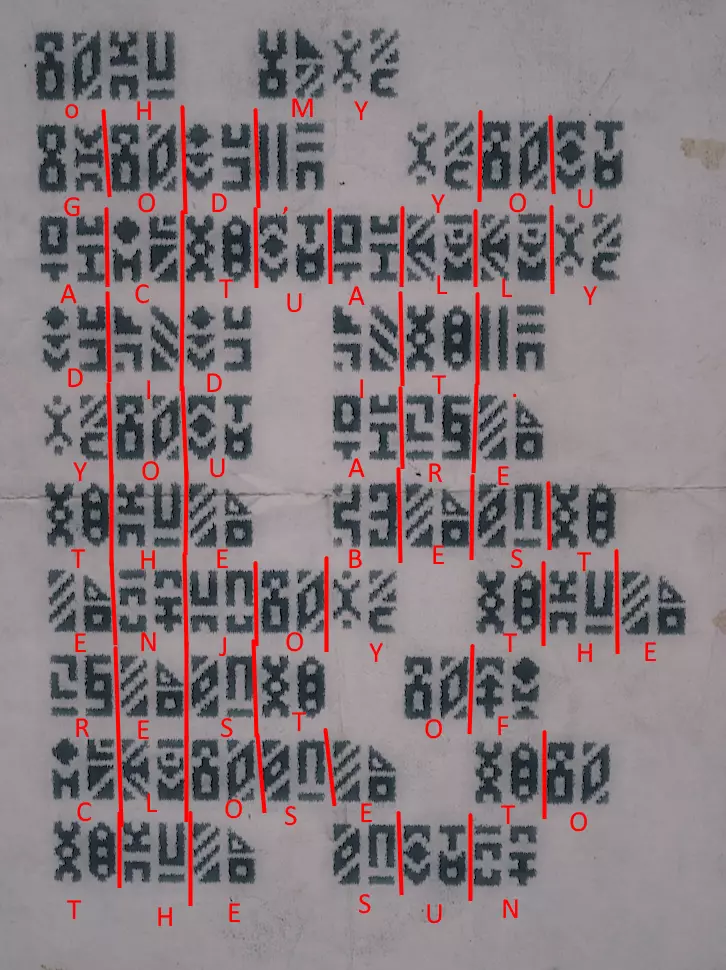 oH MY
GOD, YOU
ACTUALLY
DID IT.
YOU ARE
THE BEST
ENJOY THE
REST OF
CLOSE TO
THE SUN